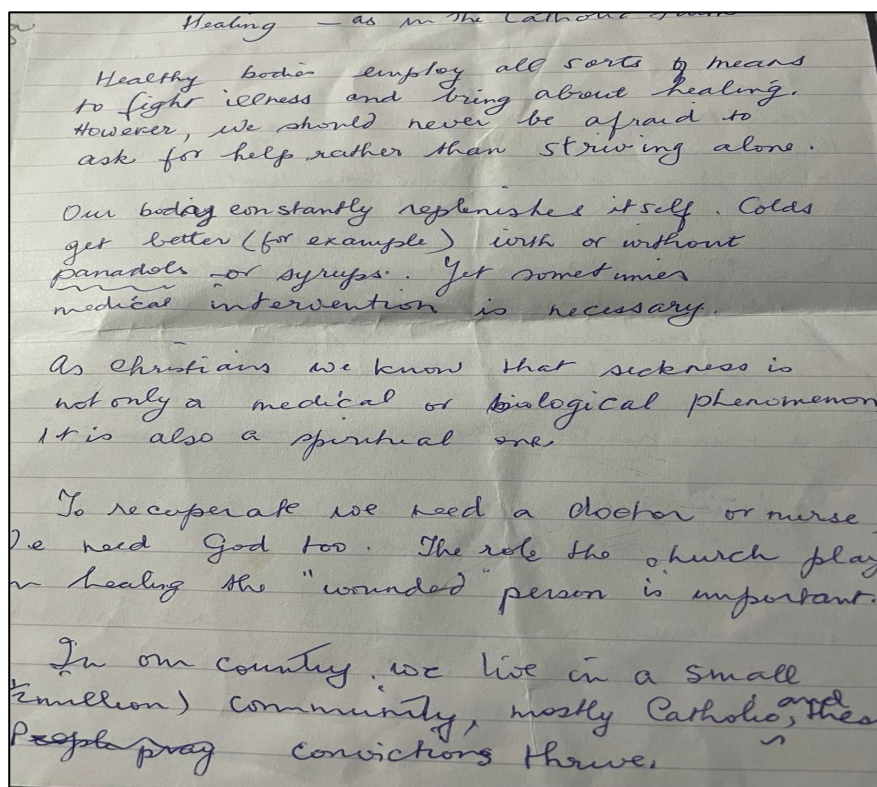 Healing — as in the Catholic
Healthy bodies employ all sorts of means
to fight illness and bring about healing.
However, we should never be afraid to
ask for help rather than striving alone.
Our body constantly replenishes itself. Colds
get better (for example) with or without
panadols or syrups. Yet sometimes
medical intervention is necessary.
As Christians we know that sickness is
not only a medical or biological phenomenon
It is also a spiritual one.
To recuperate we need a doctor or nurse
need God too. The role the church play
healing the "wounded" person is important.
In our country, we live in a small
½ million) community, mostly Catholic, and
People pray convictions thrive.